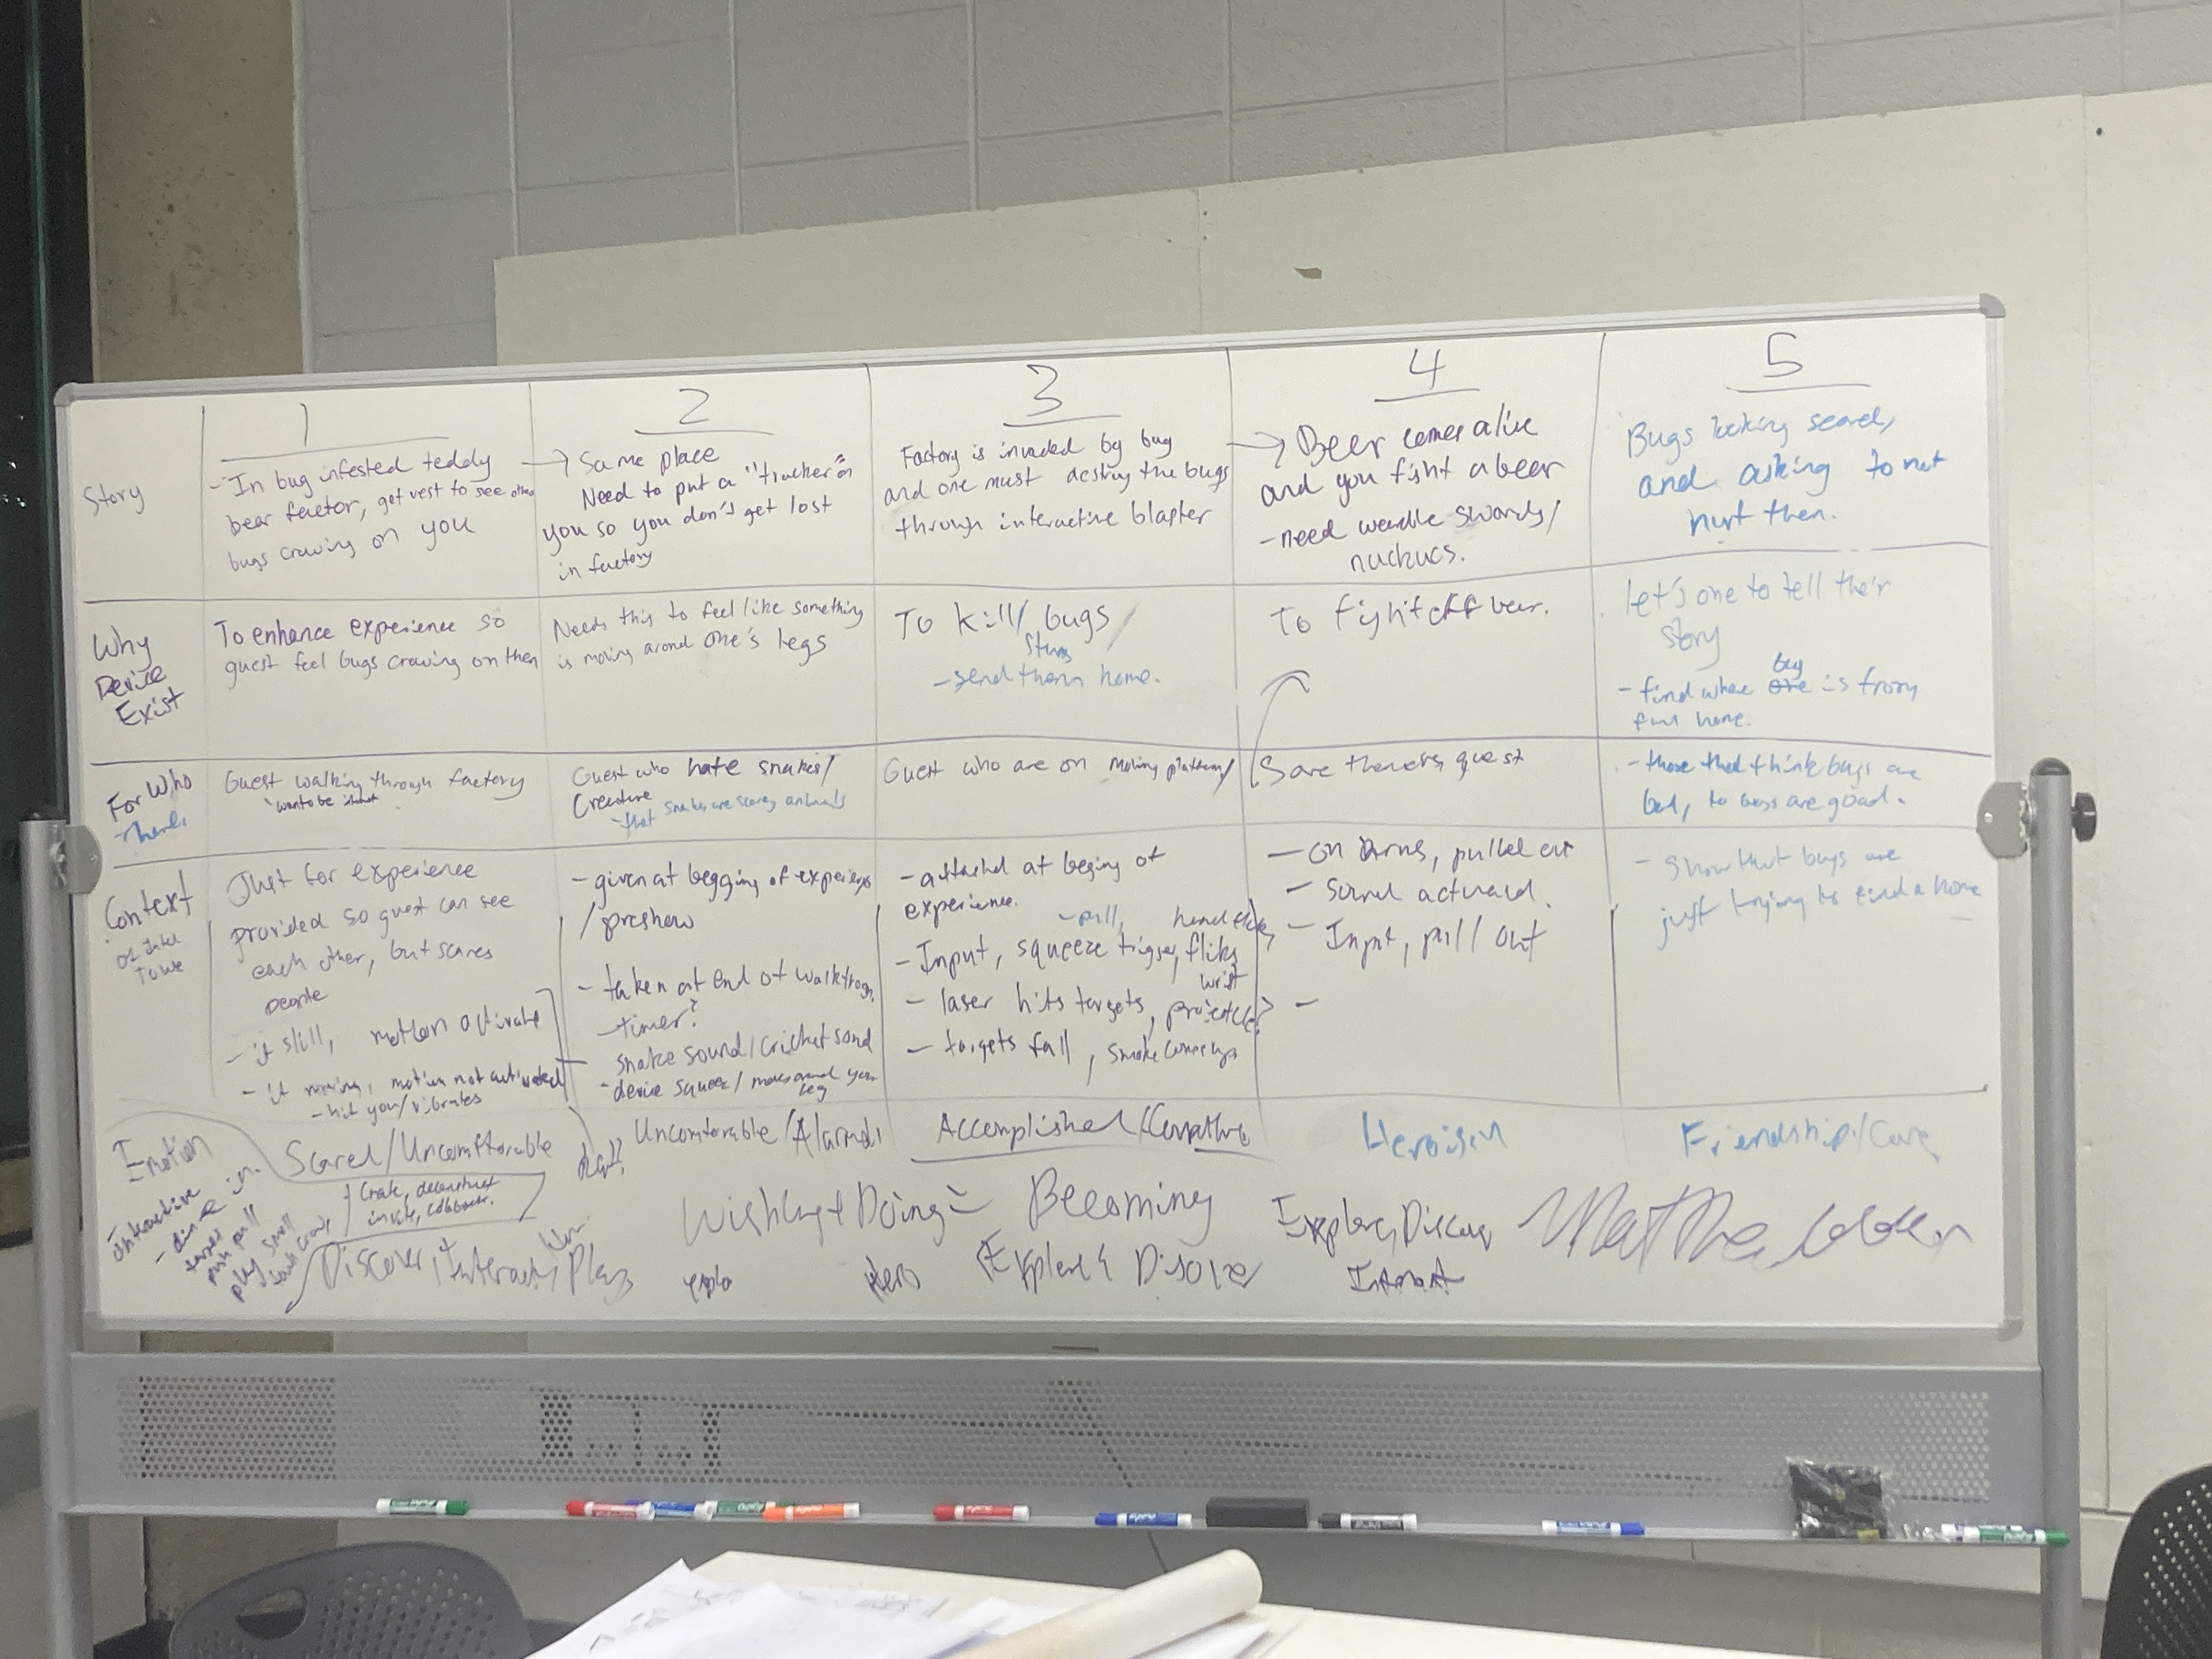 1
2
3
4
5
Story
- In bug infested teddy
bear factor, get vest to see other
bugs crawing on you
→ Same place
Need to put a "tracker" on
you so you don't get lost
in factory
Factory is invaded by bug
and one must destroy the bugs
through interactive blaster
→ Beer comes alive
and you fight a beer
- need wearble swords/
nuckucs.
Bugs looking scared,
and asking to not
hurt then.
Why
Device
Exist
To enhance experience so
guest feel bugs crawing on then
Needs this to feel like something
is moving around one's legs
To kill/ bugs
- send them home.
To fight off bear.
Let's one to tell their
story
bug
- find where is from,
home.
For Who
Guest walking through factory
Guest who hate snakes/
Creature
- that snakes are scarey animals
Guest who are on moving platform/
Save theners guest
- those that think bugs are
bad, to bugs are good.
Context
Just for experience
provided so guest can see
each other, but scares
people
- if still, motion activate
- if moving, motion not activated
- hit you/vibrates
- given at begging of experience
/preshow
- taken at end of walkthrogh
- timer?
snake sound/cricket sond
- device squeez/ moves around your
leg
- attached at begining of
experience.
- pull,
- Input, squeeze trigger, fliks
wrist
- laser hits targets, projectile?
- targets fall, smoke comes up
- on arms, pulled out
- sound actuard.
- Input, pull out
-
- Show that bugs are
just trying to find a home
Emotion
Scared/Uncomftorable
Uncomforable/Alarmd
Accomplished/
Heroism
Friendship/Care
Interactive
push pull
play smell
Create, deconstruct
invite,
Discover, Interact, Play
Wishing + Doing =
Becoming
Hero
Explore & Disover
Explore, Discover
Interact